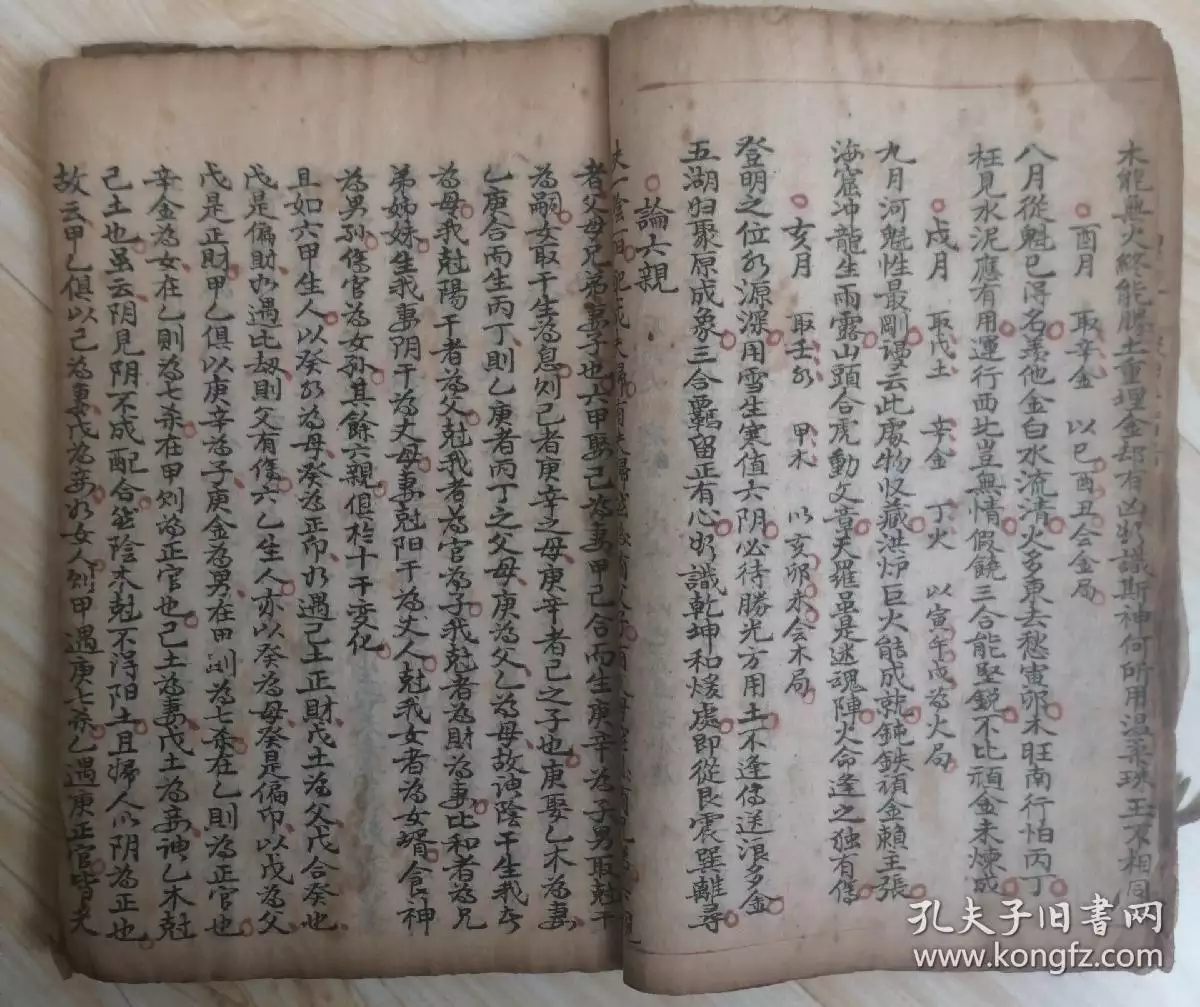 木能無火終能勝土重埋金却有凶於識斯神何所用温柔珠玉不相同
酉月 取辛金 以巳酉丑会金局
八月從魁已得名羡他金白水流清火多東去愁寅卯木旺南行怕丙丁
柱見水泥應有用運行西北豈無情假饒三合能堅銳不比頑金未煉成
戍月 取戊土 辛金 丁火 以寅午戍為火局
九月河魁性最剛漫云此處物收藏洪炉巨火能成就鈍鉄頑金賴主張
海窟冲龍生雨露山頭合虎動文章天羅虽是迷魂陣火命逢之独有傷
亥月 取壬水 甲木 以亥卯未会木局
登明之位水源深用雪生寒值六阴必待勝光方用土不逢傳送浪多金
五湖归聚原成象三合覊留正有心欲識乾坤和煖處即從艮震巽離尋
論六親
者父母兄弟妻子也六甲娶己為妻甲己合而生庚辛為子男取尅干
為嗣女取干生為息则己者庚辛之母庚辛者己之子也庚娶乙木為妻
乙庚合而生丙丁則乙庚者丙丁之父母庚為父乙為母故陰干生我者
為母我尅陽干者為父尅我者為官為子我尅者為財為妻比和者為兄
弟姊妹生我妻阴干為丈母妻尅阳干為丈人尅我女者為女壻食神
為男孙傷官為女孙其餘六親俱於十干变化
且如六甲生人以癸水為母癸為正印如遇己土正財戊土為父戊合癸也
戊是偏財如遇比刼則父有傷六乙生人亦以癸為母癸是偏印以戊為父
戊是正財甲乙俱以庚辛為子庚金為男在甲則為七杀在乙則為正官也
辛金為女在乙則為七杀在甲则為正官也己土為妻戊土為妾乙木尅
己土也虽云阴見阴不成配合然陰木尅不淂阳土且婦人以阴為正也
故云甲乙俱以己為妻戊為妾如女人则甲遇庚七杀乙遇庚正官皆夫
孔夫子旧书网
www.kongfz.com